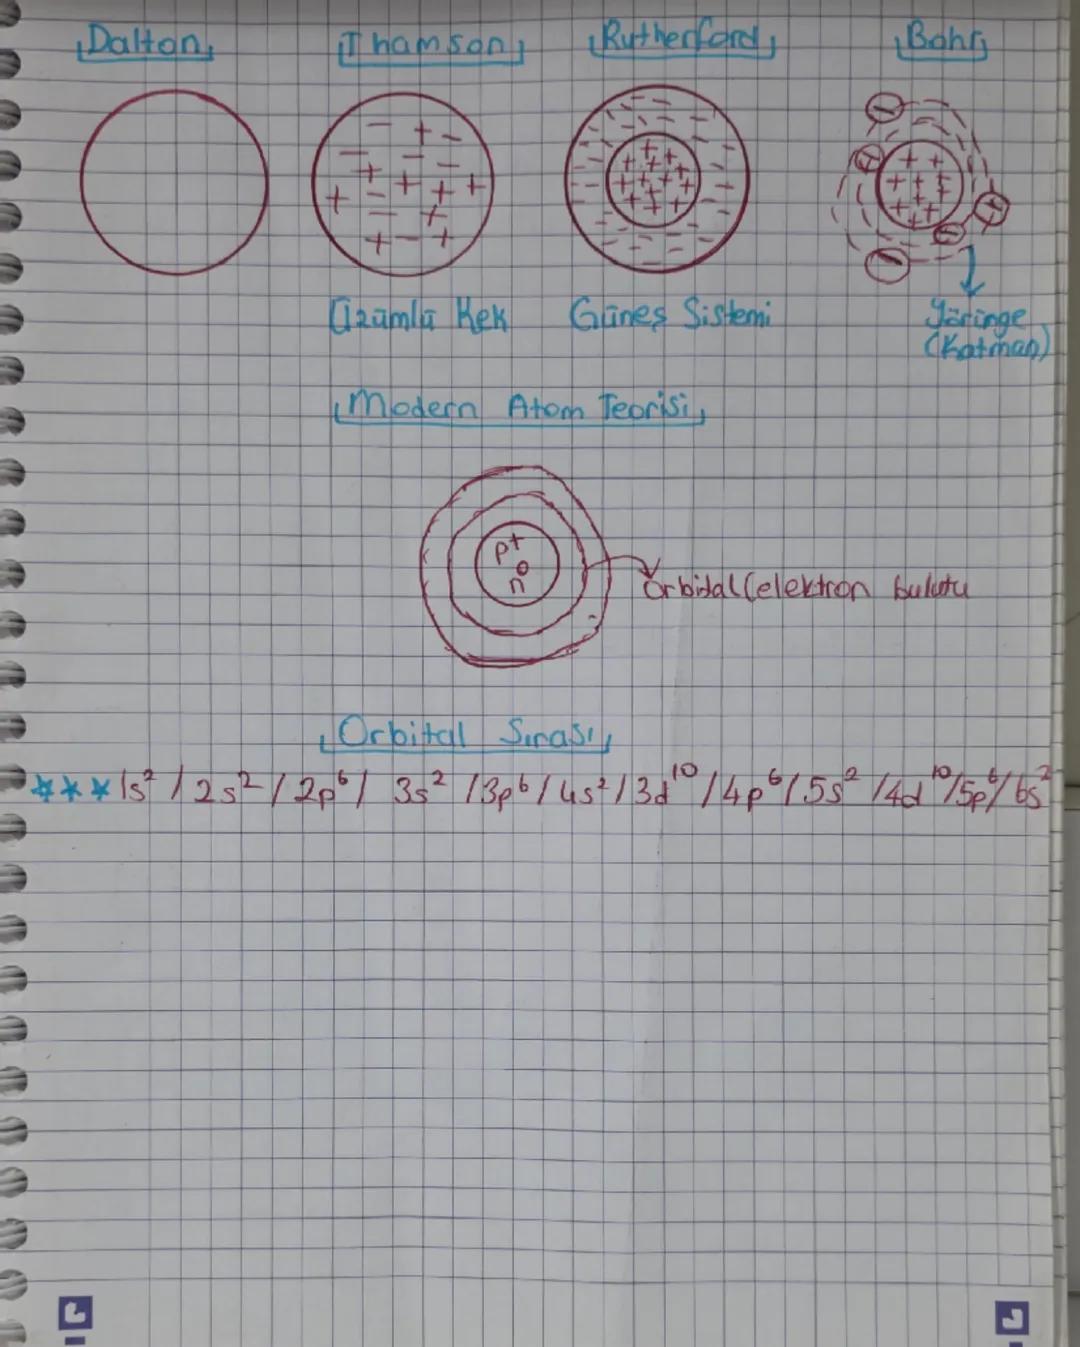 Dalton Thomson Rutherford Bohr
Üzümlü Kek Güneş Sistemi Yörünge
(Katman)
Modern Atom Teorisi
p+
n0
Orbital (elektron bulutu
Orbital Sırası
*** 1s² / 2s² / 2p⁶ / 3s² / 3p⁶ / 4s² / 3d¹⁰ / 4p⁶ / 5s² / 4d¹⁰ / 5p⁶ / 6s²